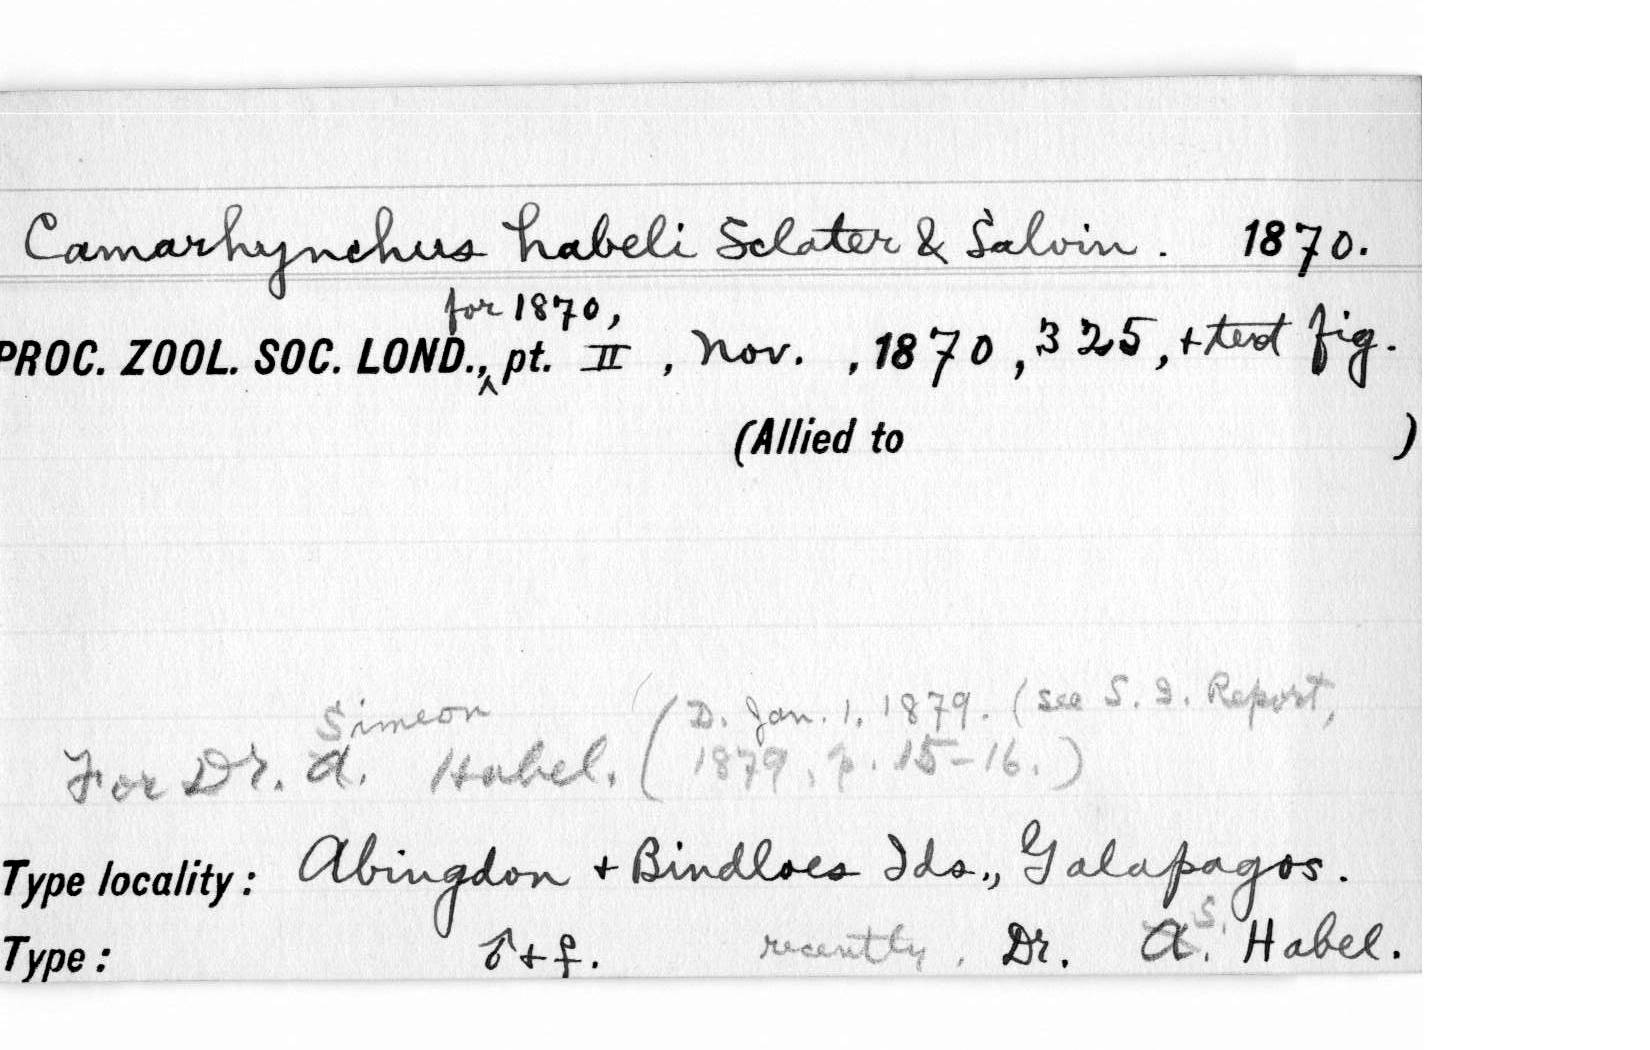 Camarhynchus habeli Sclater & Salvin. 1870.
for 1870,
PROC. ZOOL. SOC. LOND.,^ pt. II, Nov., 1870, 325, + text fig.
(Allied to )
Simeon (D. Jan. 1, 1879. (see S. I. Report,
For Dr. A. Habel. 1879, p. 15-16.)
Type locality: Abingdon + Bindloes Ids., Galapagos.
S.
Type: ♂ + ♀. recently. Dr. A. Habel.